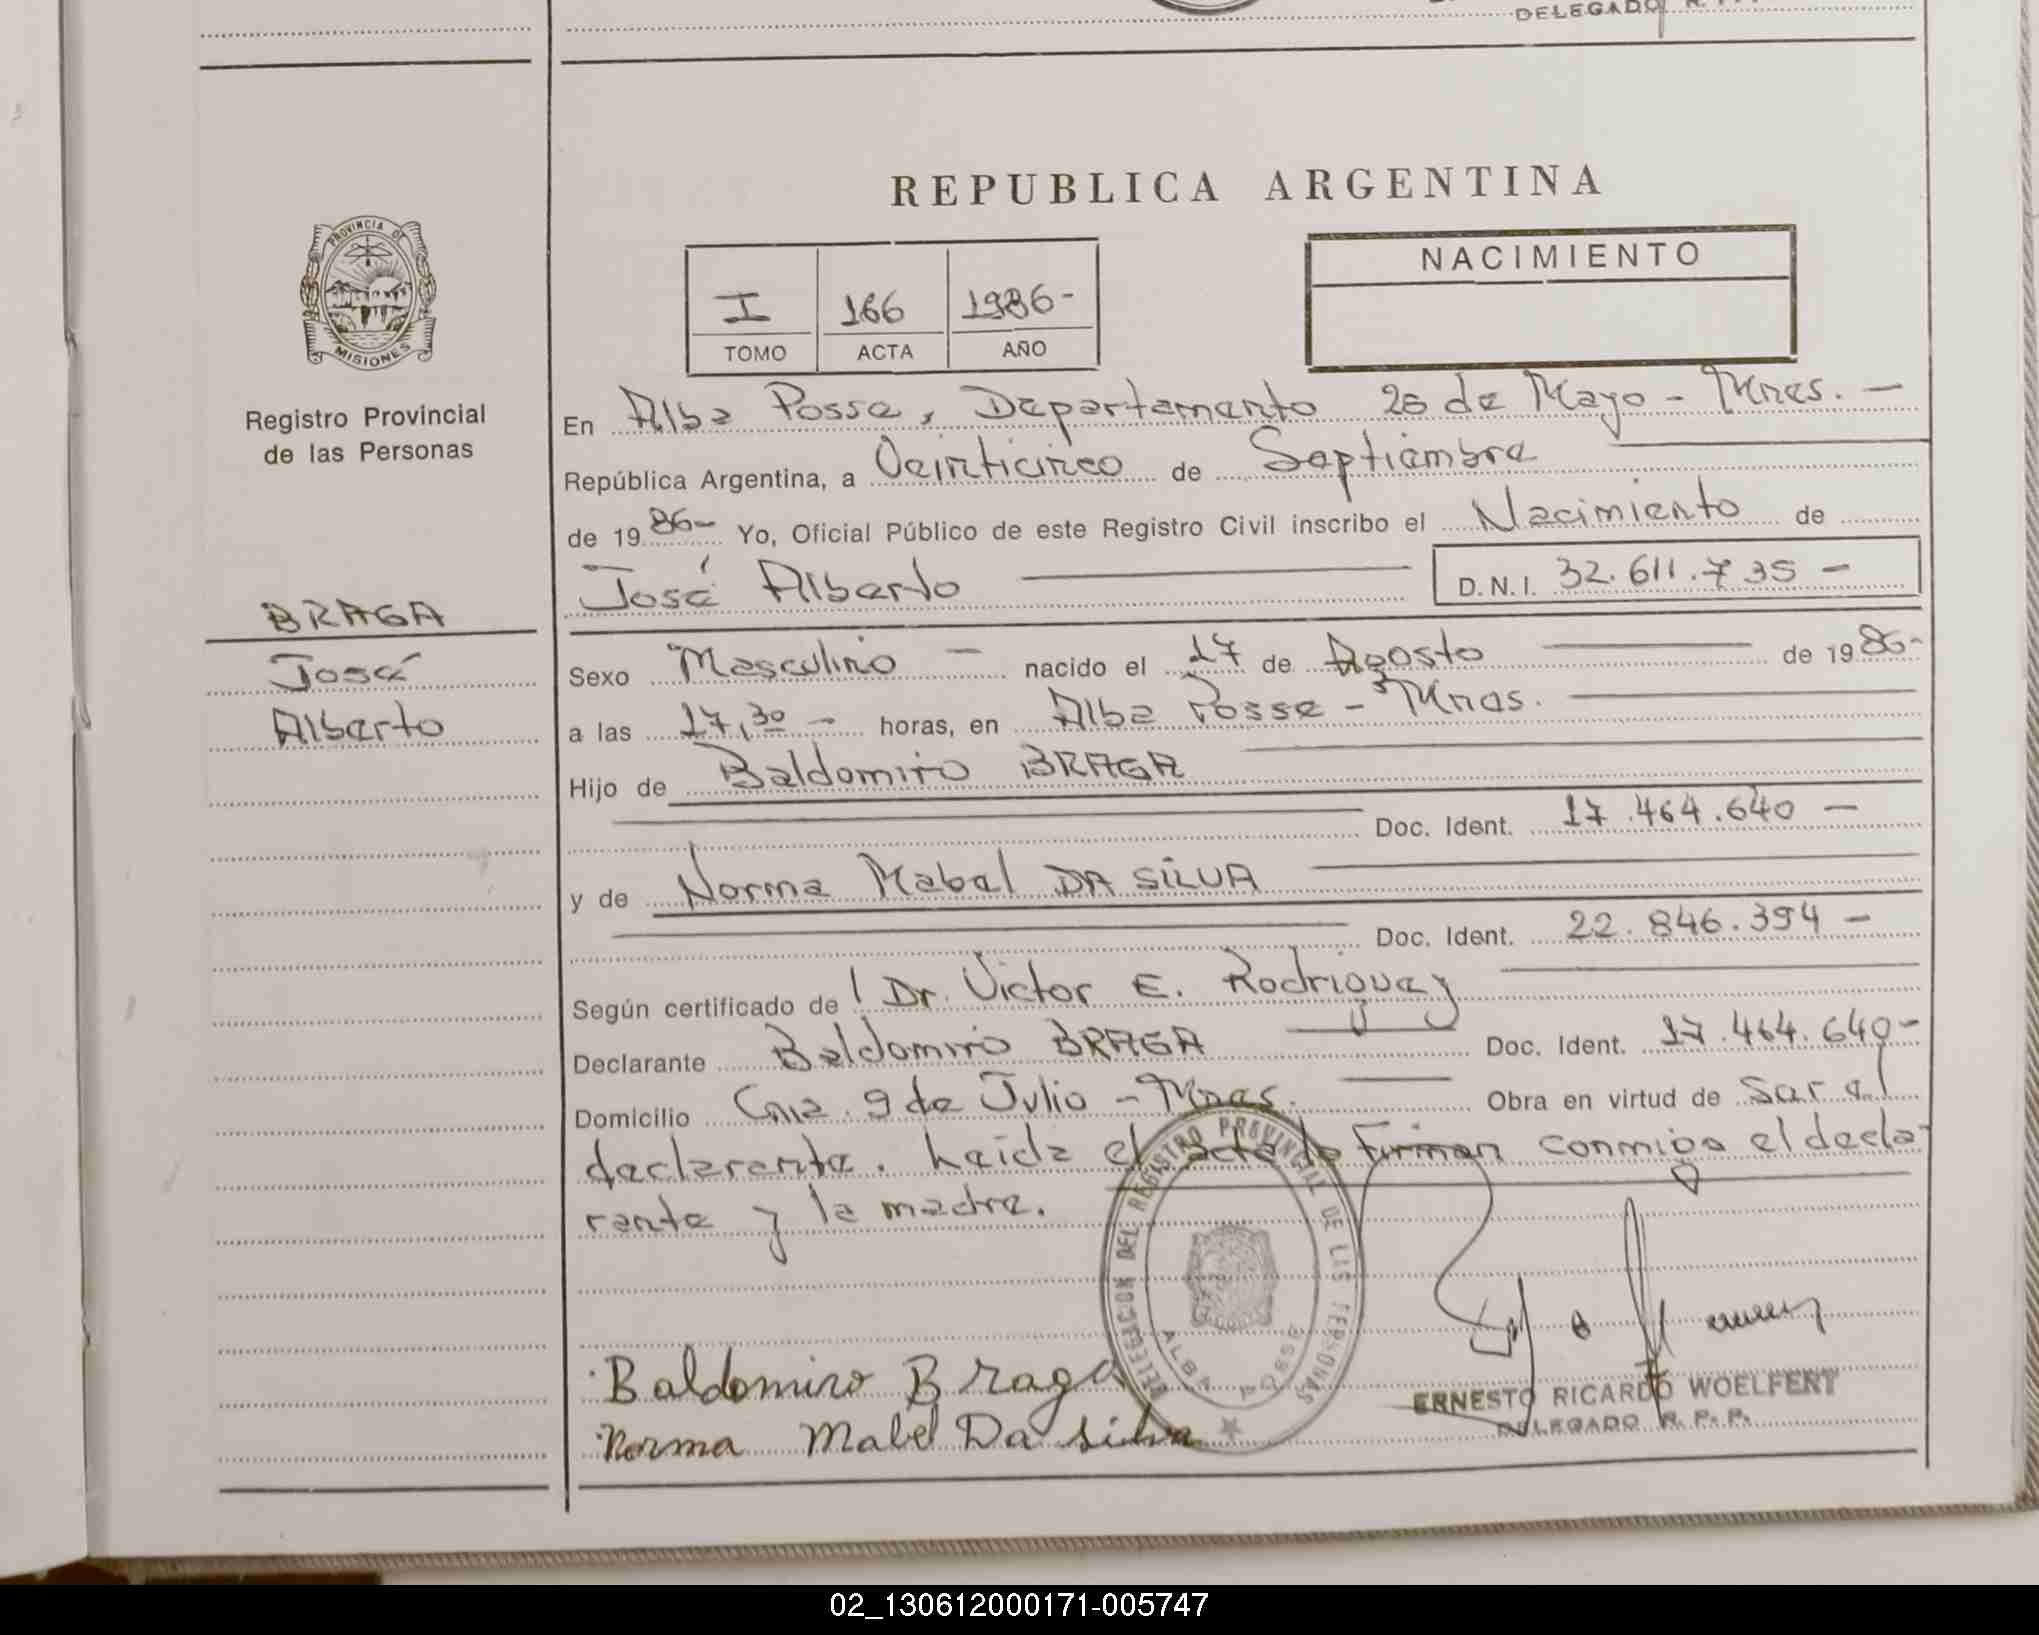 DELEGADO R. P. P.
REPUBLICA ARGENTINA
PROVINCIA DE
MISIONES
Registro Provincial
de las Personas
I 166 1986-
TOMO ACTA AÑO
NACIMIENTO
En Alba Posse, Departamento 25 de Mayo - Mnes. -
República Argentina, a Veinticinco de Septiembre
de 1986- Yo, Oficial Público de este Registro Civil inscribo el Nacimiento de
José Alberto D.N.I. 32.611.735 -
BRAGA
José
Alberto
Sexo Masculino - nacido el 17 de Agosto de 1986-
a las 17,30 - horas, en Alba Posse - Mnes.
Hijo de Baldomiro BRAGA
Doc. Ident. 17.464.640 -
y de Norma Mabel DA SILVA
Doc. Ident. 22.846.394 -
Según certificado de Dr. Victor E. Rodriguez
Declarante Baldomiro BRAGA Doc. Ident. 17.464.640-
Domicilio Cnia. 9 de Julio - Mnes. Obra en virtud de Ser el
declarante. Leida el acta la Firman conmigo el decla-
rante y la madre.
DELEGACION DEL REGISTRO PROVINCIAL DE LAS PERSONAS
ALBA POSSE
Baldomiro Braga
Norma Mabel Da silva
ERNESTO RICARDO WOELFERT
DELEGADO R. P. P.
02_130612000171-005747